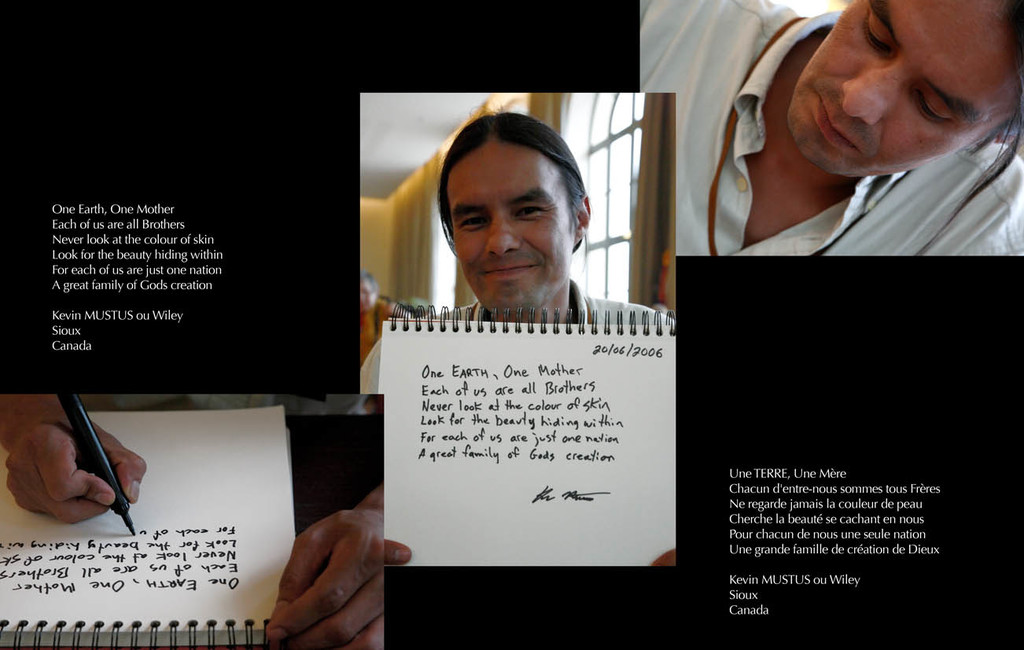 One Earth, One Mother
Each of us are all Brothers
Never look at the colour of skin
Look for the beauty hiding within
For each of us are just one nation
A great family of Gods creation
Kevin MUSTUS ou Wiley
Sioux
Canada
20/06/2006
One EARTH, One Mother
Each of us are all Brothers
Never look at the colour of skin
Look for the beauty hiding within
For each of us are just one nation
A great family of Gods creation
One EARTH, One Mother
Each of us are all Brothers
Never look at the colour of sk
Look for the beauty hiding wi
For each of us
Une TERRE, Une Mère
Chacun d'entre-nous sommes tous Frères
Ne regarde jamais la couleur de peau
Cherche la beauté se cachant en nous
Pour chacun de nous une seule nation
Une grande famille de création de Dieux
Kevin MUSTUS ou Wiley
Sioux
Canada